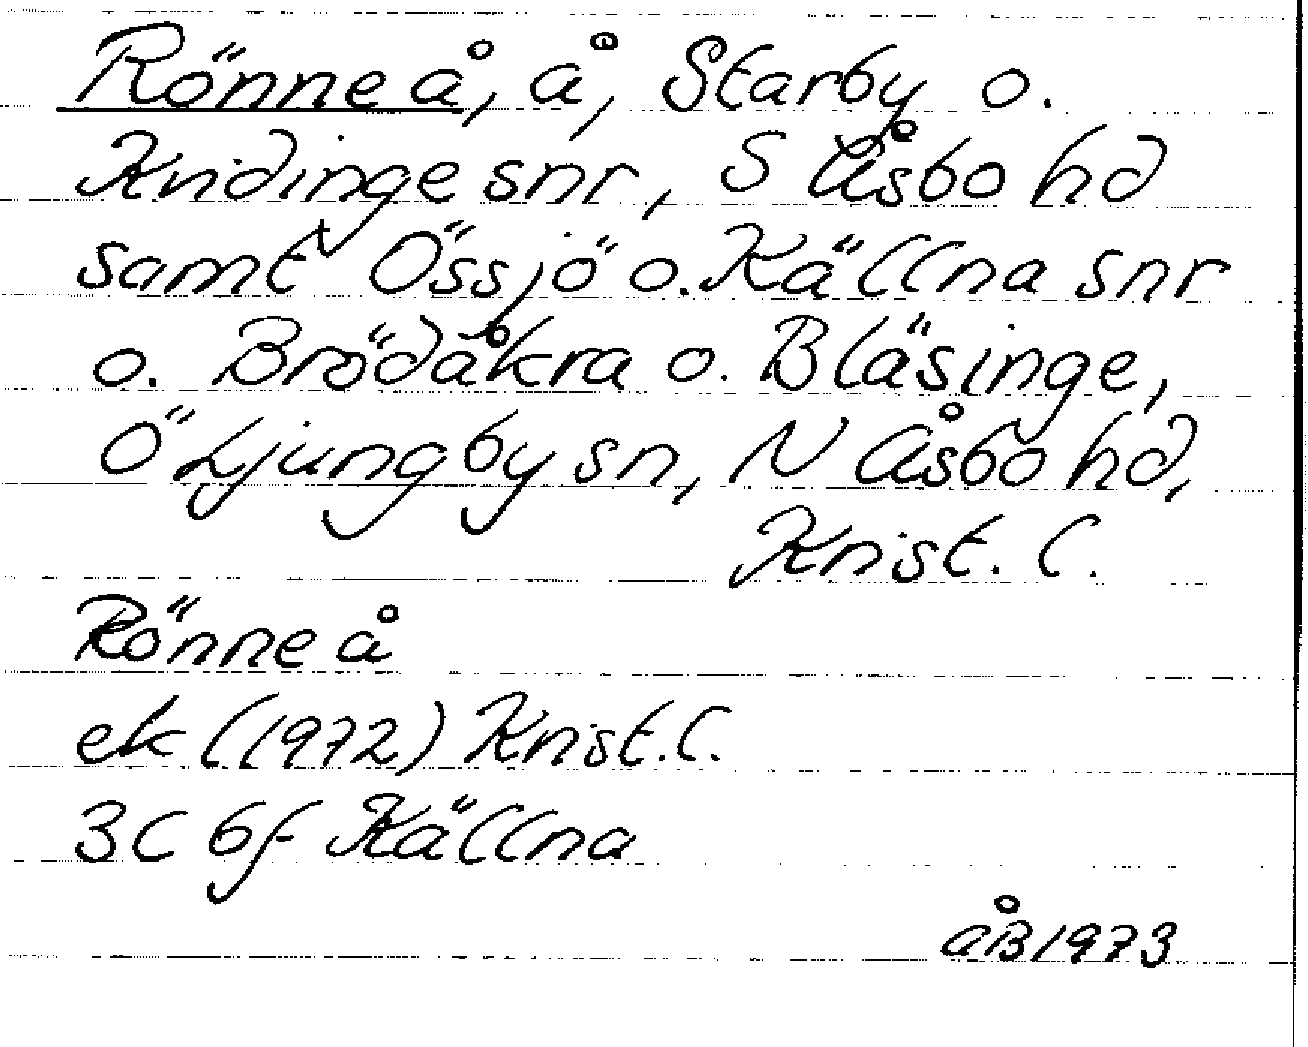 Rönne å, å, Starby o.
Kvidinge snr, S Åsbo hd
samt Össjö o. Källna snr
o. Brödåkra o. Bläsinge,
Ö Ljungby sn, N Åsbo hd,
Krist. l.
Rönne å
ek (1972) Krist. l.
3C 6f Källna
ÅB 1973